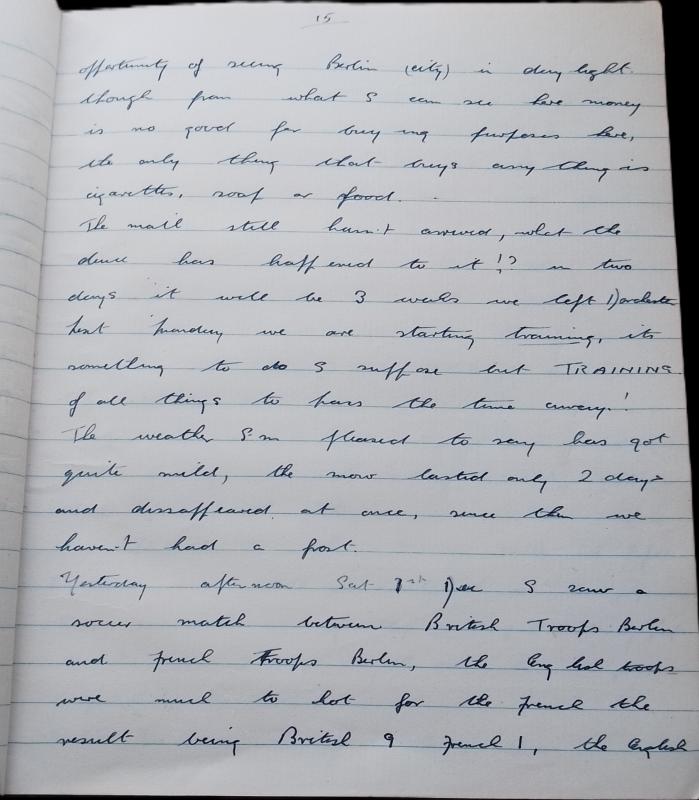 15
opportunity of seeing Berlin (city) in day light.
though from what I can see here money
is no good for buying purposes here,
the only thing that buys any thing is
cigarettes, soap or food.
The mail still hasn't arrived, what the
deuce has happened to it!? in two
days it will be 3 weeks we left Dorchester
next Monday we are starting training, its
something to do I suppose but TRAINING
of all things to pass the time away!!
The weather I'm pleased to say has got
quite mild, the snow lasted only 2 days
and dissappeared at once, since then we
haven't had a frost.
Yesterday afternoon Sat 1st Dec I saw a
soccer match between British Troops Berlin
and French Troops Berlin, the English troops
were much to hot for the French the
result being British 9 French 1, the English